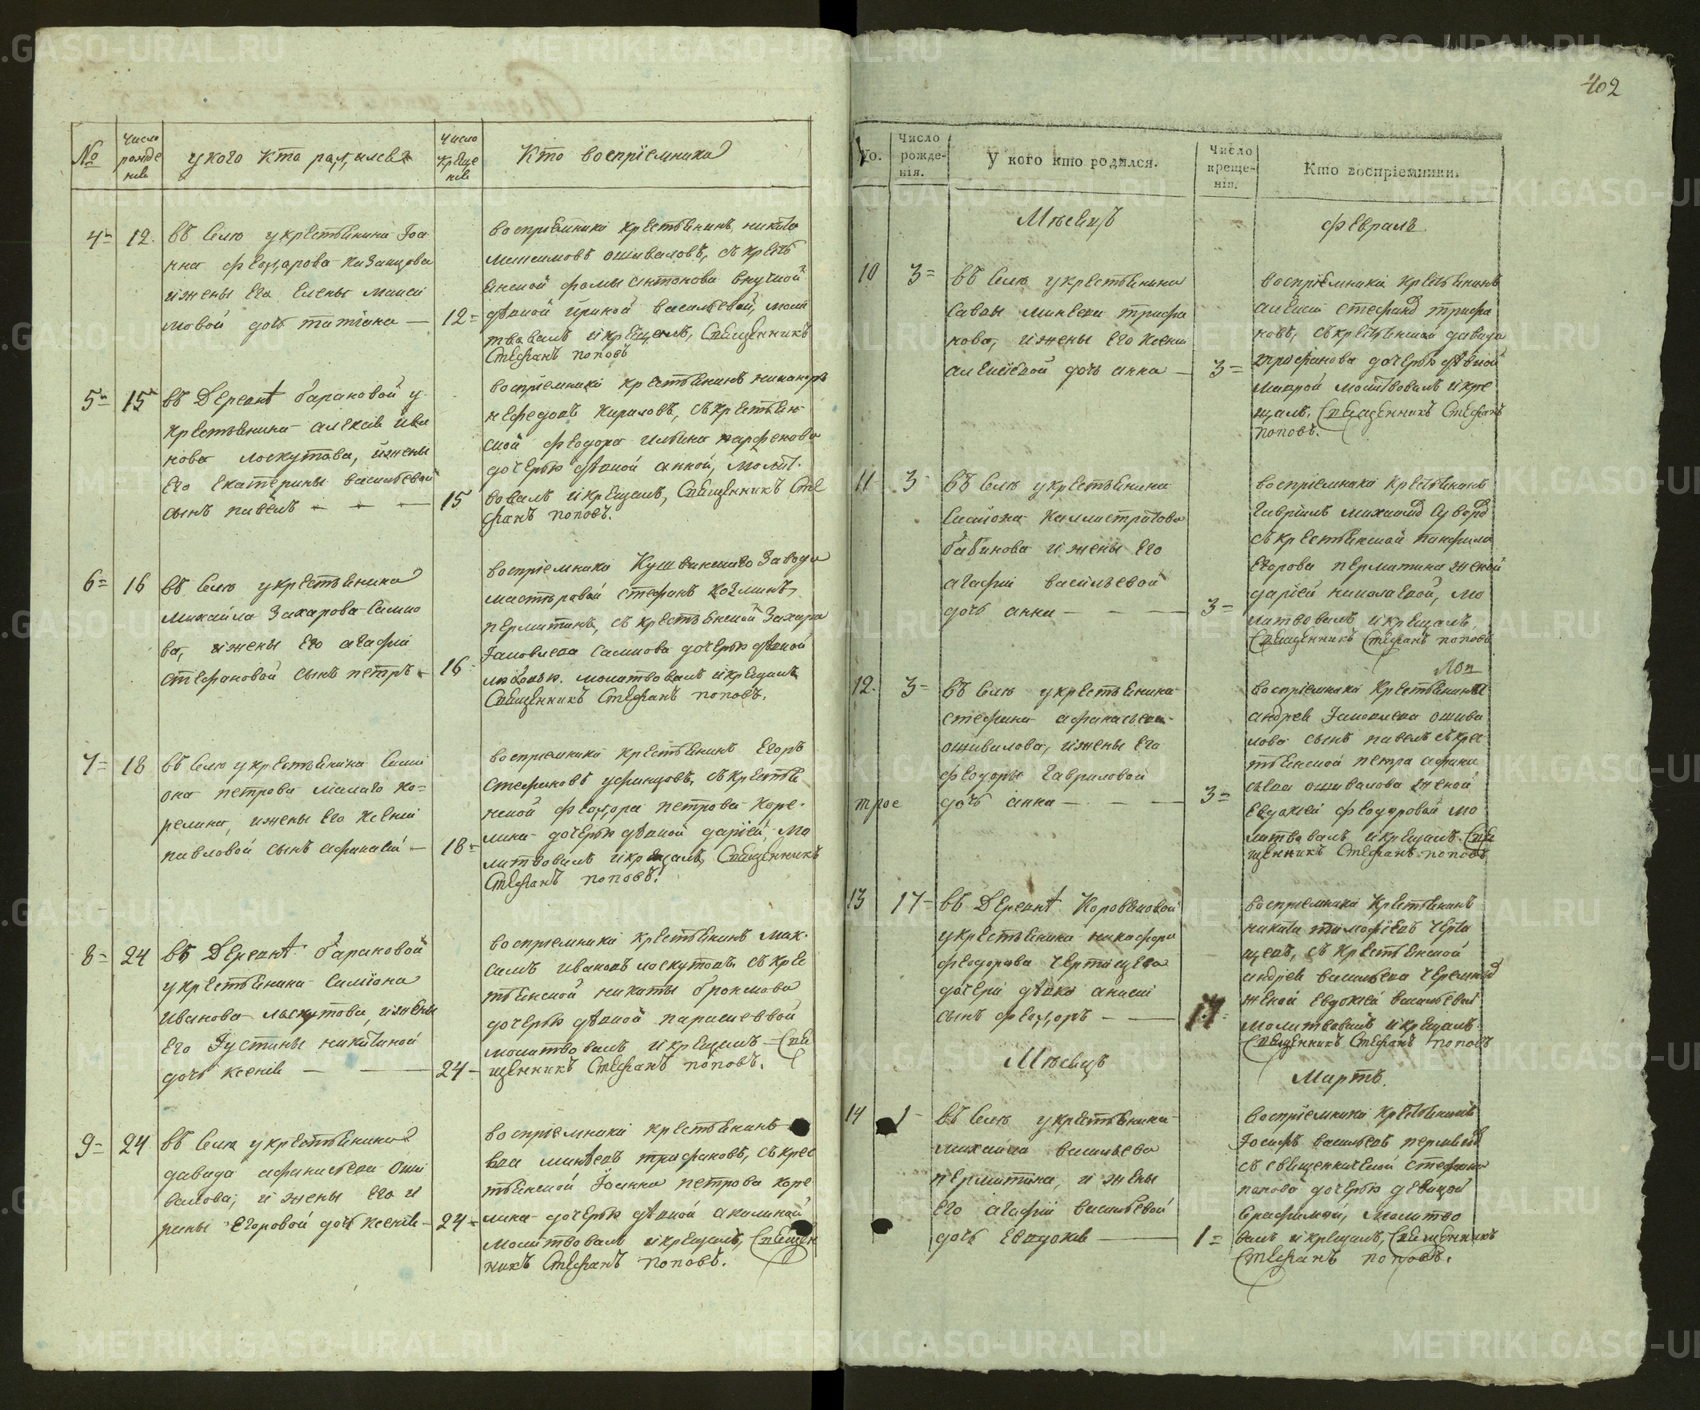 402
№
Число рожде нiя
у кого кто родился
Число креще нiя
Кто воспрiемники
4 12.
въ селѣ у крестьянина Iоа
нна Феодорова Казанцова
и жены его Елены Макси
мовой дочь татiана —
12
воспрiемники крестьянинъ никита
максимовъ ошиваловъ, съ кресть
янской фомы Антонова внучкой
дѣвкой Ириной васильевой, моли
твовалъ и крещалъ, Священникъ
Стефанъ поповъ
5 15
въ Деревнѣ барановой у
крестьянина алексiя ива
нова лоскутова, и жены
его екатерины васильевой
сынъ павелъ
15
воспрiемники крестьянинъ никаноръ
нефедовъ Кириловъ, съ крестьян
ской феодора ильина парфенова
дочерью дѣвкой анной, молит
вовалъ и крещалъ, Священникъ Сте
фанъ поповъ.
6 16
въ селѣ у крестьянина
михаила Захарова
ва, и жены его агафiи
стефановой сынъ петръ
16
воспрiемники Кушвинскаго Завода
мастеровой стефанъ Козминъ
пермитинъ, съ крестьянской Захара
Iаковлева дочерью дѣвкой
любовью. молитвовалъ и крещалъ
Священникъ Стефанъ поповъ.
7 18
въ селѣ у крестьянина Сими
она петрова малаго ко=
релина, и жены его Ксенiи
павловой сынъ афанасiй —
18
воспрiемники крестьянинъ Егоръ
стефановъ уфинцовъ, съ крестья
нской феодора петрова Коре
лина дочерью дѣвкой дарiей, мо
литвовалъ и крещалъ, Священникъ
Стефанъ поповъ.
8 24
въ Деревнѣ барановой
у крестьянина Симiона
иванова лоскутова, и жены
его Iустины никитиной
дочь Ксенiя —
24
воспрiемники крестьянинъ мак
симъ ивановъ лоскутовъ съ крес
тьянской никиты
дочерью дѣвкой парасковьей
молитвовалъ и крещалъ Свя
щенникъ Стефанъ поповъ.
9 24
въ селѣ у крестьянина
давида афанасьева оши
валова, и жены его и
рины Егоровой дочь ксенiя
24
воспрiемники крестьянинъ
мин
ѣевъ трифоновъ, съ крес
тьянской Iоанна петрова коре
лина дочерью дѣвкой акилиной
молитвовалъ и крещалъ, Священ
никъ Стефанъ поповъ.
No.
Число рожде- нiя.
У кого кто родился.
Число креще- нiя.
Кто воспрiемники.
Мѣсяцъ
Февраль
10 3
въ селѣ у крестьянина
Савы минѣева трифо
нова, и жены его Ксенiи
алексiевой дочь анна —
3
воспрiемники крестьянинъ
алексiй трифо
новъ, съ крестьянской давида
трифанова дочерью дѣвкой
маврой молитвовалъ и кре
щалъ. Священникъ Стефанъ
поповъ.
11 3
въ селѣ у крестьянина
Симiона Каллистратова
бабинова и жены его
агафiи васильевой
дочь анна
3
воспрiемники крестьянинъ
Гаврiилъ
съ крестьянской
Егорова пермитина женой
дарiей николаевой, мо
литвовалъ и крещалъ.
Священникъ Стефанъ поповъ
12. 3
въ селѣ у крестьянина
стефана афанасьева
ошивалова, и жены его
феодоры Гавриловой
трое
дочь анна
3
воспрiемники крестьянина
андрея Iаковлева ошива
лова сынъ павелъ съ крес
тьянской петра афана
сьева ошивалова женой
Евдокiей феодоровой мо
литвовалъ и крещалъ. Свя
щенникъ Стефанъ поповъ
13 17
въ Деревнѣ Коровяковой
у крестьянина никифора
феодорова
дочери дѣвки
сынъ феодоръ
17
воспрiемники крестьянинъ
никита тимофѣевъ
съ крестьянской
андрея васильева
женой Евдокiей васильевой
молитвовалъ и крещалъ
Священникъ Стефанъ поповъ
Мѣсяцъ
Мартъ.
14 1
въ селѣ у крестьянина
михаила васильева
пермитина, и жены
его агафiи васильевой
дочь Евдокiя
1
воспрiемники крестьянинъ
Iосифъ васильевъ
съ священнической стефана
попова дочерью девицей
Серафимой, молитво
валъ и крещалъ, Священникъ
Стефанъ поповъ.
METRIKI.GASO-URAL.RU